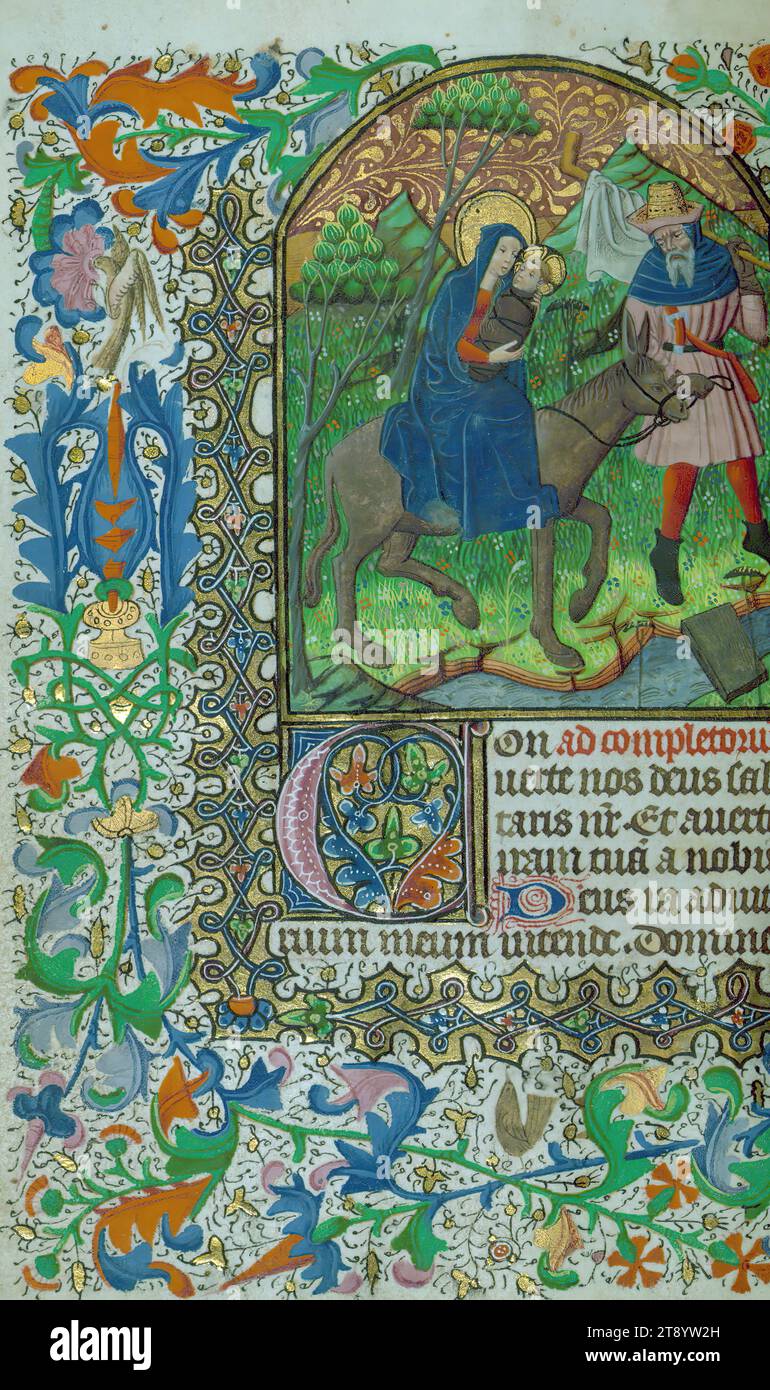 Con ad completoru
uerte nos deus sal
taris nr̄. Et auert
iram tuā a nobis
Deus in adiut
rium meum intende. Domine
alamy
Image ID: 2T8YW2H
www.alamy.com